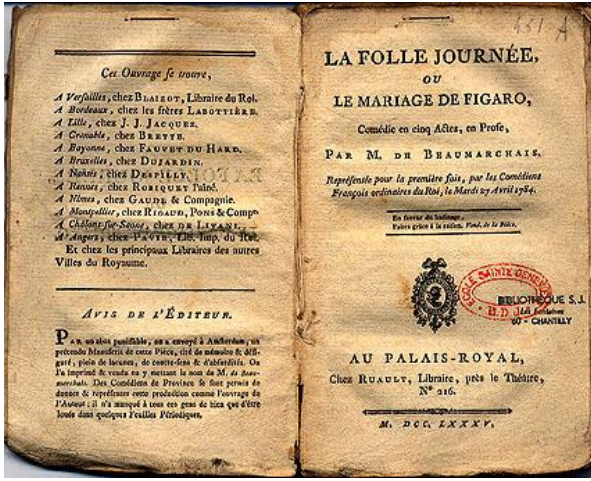 Cet Ouvrage se trouve,
A Versailles, chez BLAIZOT, Libraire du Roi.
A Bordeaux, chez les frères LABOTTIÈRE.
A Lille, chez J. J. JACQUEZ.
A Grenoble, chez BRETTE.
A Bayonne, chez FAUVET DU HARD.
A Bruxelles, chez DUJARDIN.
A Nantes, chez DESPILLY.
A Rennes, chez ROBIQUET l'aîné.
A Nîmes, chez GAUDE & Compagnie.
A Montpellier, chez RIGAUD, PONS & Compe.
A Châlons-sur-Saone, chez DE LIVANI.
A Angers, chez PAVIE, Lib. Imp. du Roi.
Et chez les principaux Libraires des autres
Villes du Royaume.
AVIS DE L'ÉDITEUR.
PAR un abus punissable, on a envoyé à Amsterdam, un
prétendu Manuscrit de cette Pièce, tiré de mémoire & défi-
guré, plein de lacunes, de contre-sens & d'absurdités. On
l'a imprimé & vendu en y mettant le nom de M. de Beau-
marchais. Des Comédiens de Province se sont permis de
donner & représenter cette production comme l'ouvrage de
l'Auteur ; il n'a manqué à tous ces gens de bien que d'être
loués dans quelques Feuilles Périodiques.
451 A
LA FOLLE JOURNÉE,
OU
LE MARIAGE DE FIGARO,
Comédie en cinq Actes, en Prose,
PAR M. DE BEAUMARCHAIS.
Représentée pour la première fois, par les Comédiens
Français ordinaires du Roi, le Mardi 27 Avril 1784.
En faveur du badinage,
Faites grâce à la raison. Vaud. de la Pièce.
ÉCOLE SAINTE GENEVIÈVE
B.D.J.
BIBLIOTHEQUE S.J.
Les Fontaines
60 - CHANTILLY
AU PALAIS-ROYAL,
Chez RUAULT, Libraire, près le Théâtre,
N° 216.
M. DCC. LXXXV.